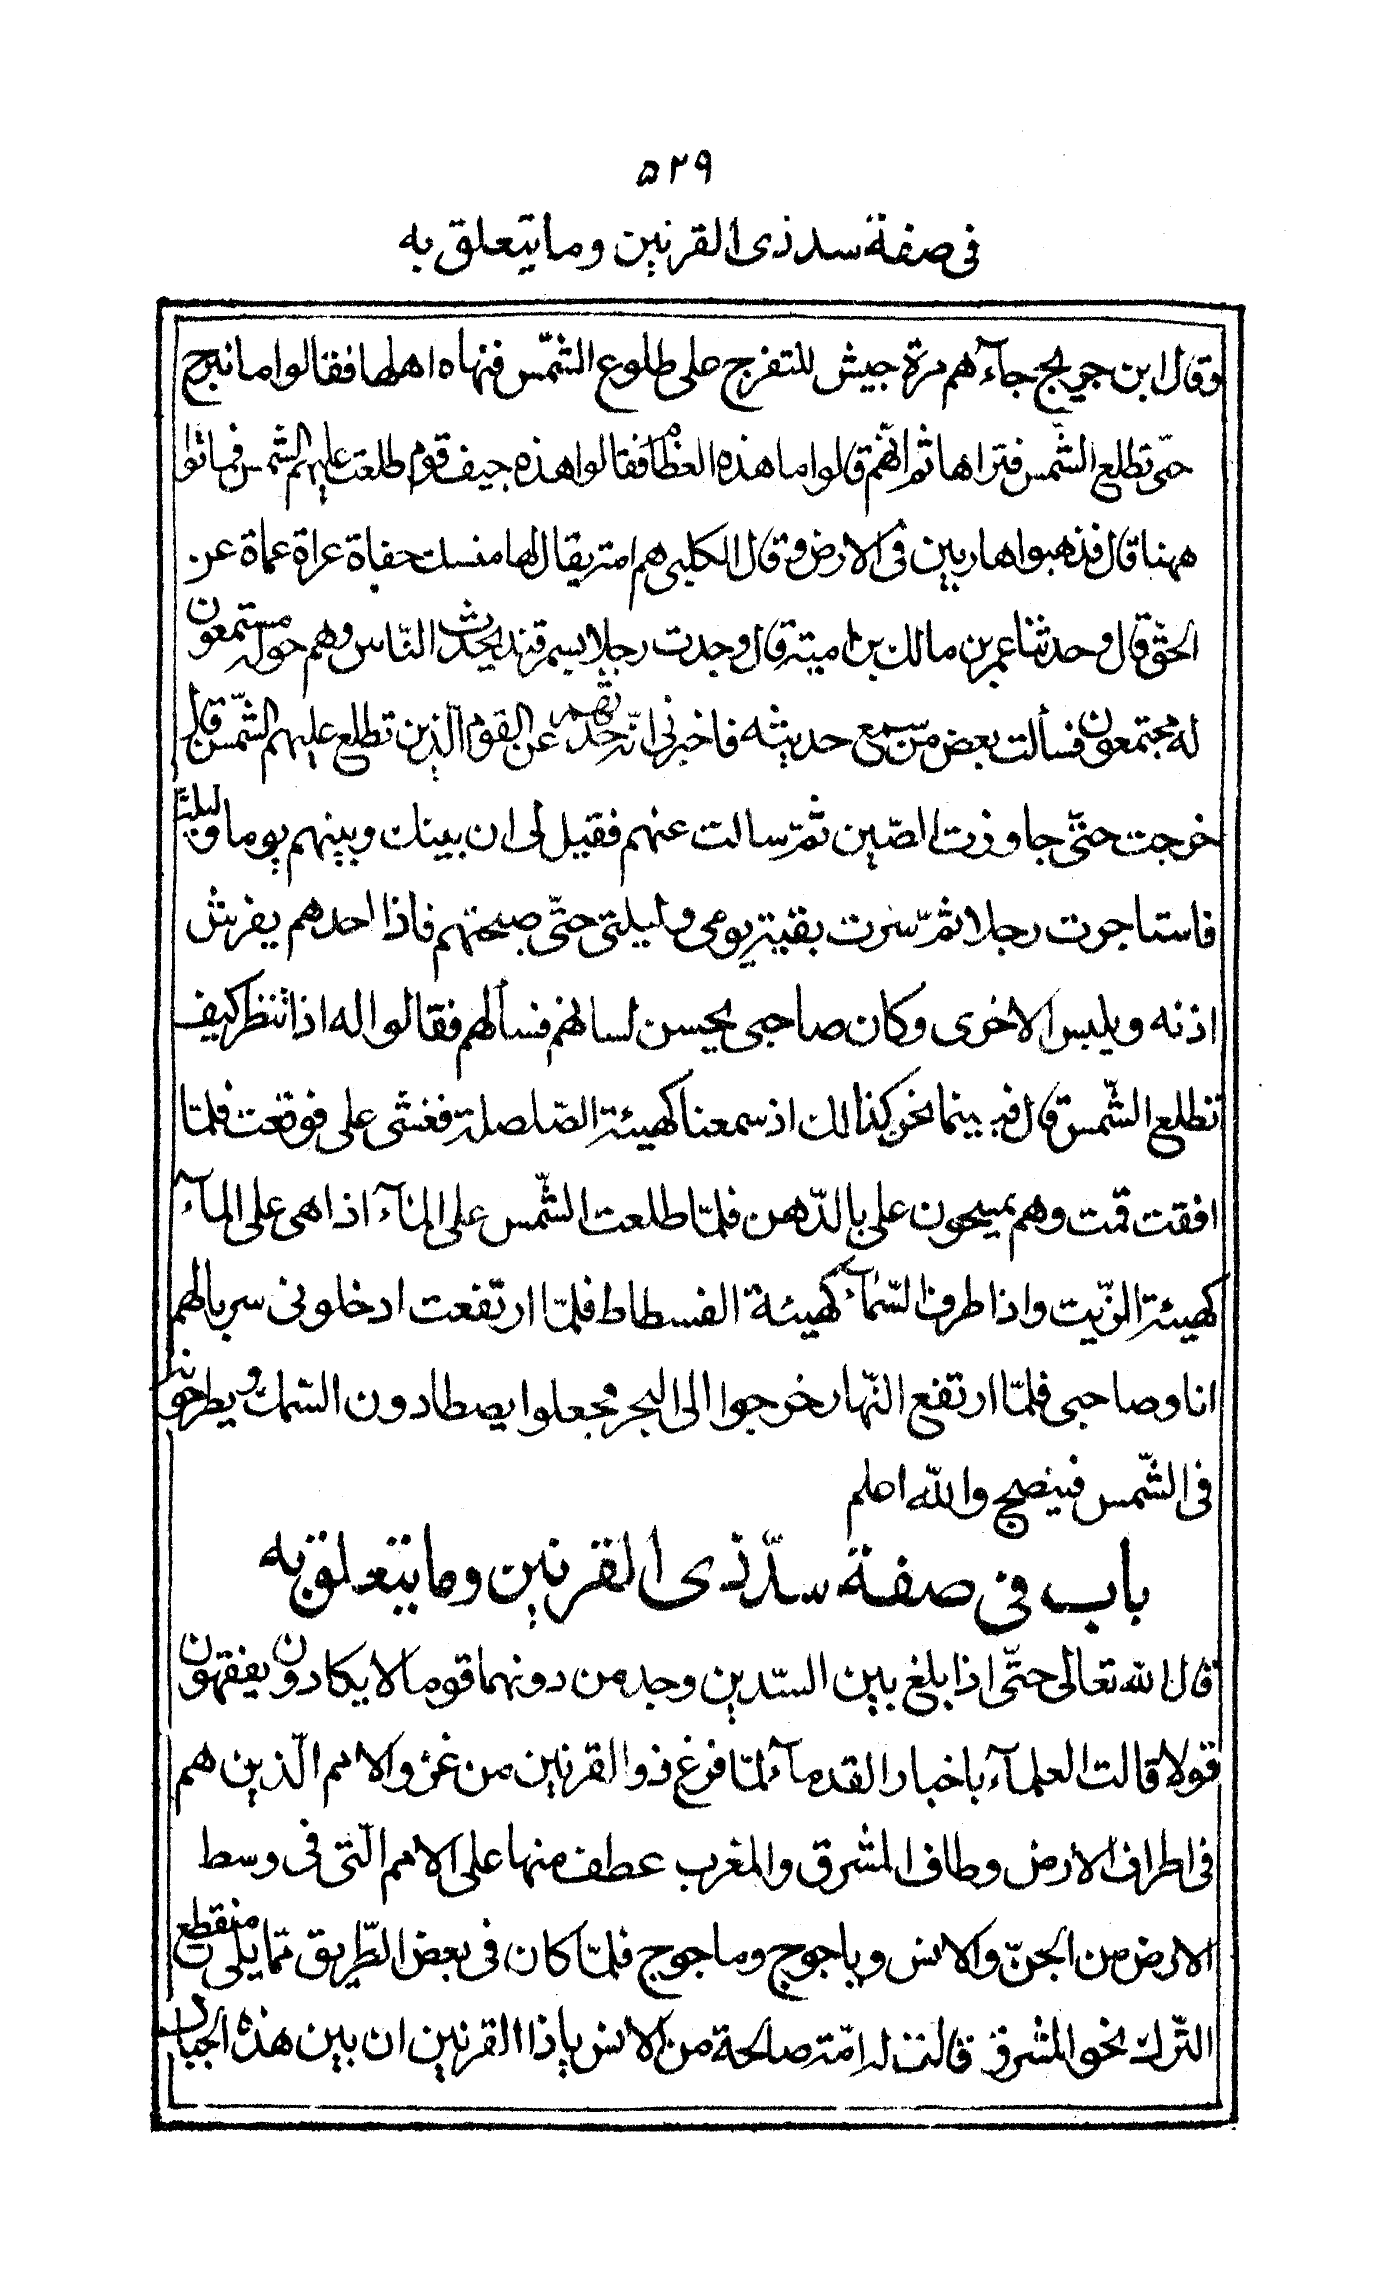 ۵۲۹
فى صفة سد ذى القرنين وما يتعلق به
وقال ابن جريج جآءهم مرة جيش للتفرج على طلوع الشّمس فنهاه اهلها فقالوا ما نبرح
حتّى تطلع الشّمس فتراها ثم انّهم قالوا ما هذه العظام فقالوا هذه جيف قوم طلعت عليهم الشمس فماتوا
ههنا قال فذهبوا هاربين فى الارض وقال الكلبى هم امة يقال لها منسك حفاة عراة عماة عن
الحقّ قال وحدثنا عمر بن مالك بن امية قال وجدت رجلا بسمرقند يحدّث النّاس وهم حوله مستمعون
له مجتمعون فسألت بعض من سمع حديثه فاخبرنى انّه حدّثهم عن القوم الّذين تطلع عليهم الشّمس قال
خرجت حتّى جاوزت الصّين ثمّ سالت عنهم فقيل لى ان بينك وبينهم يوما وليلة
فاستاجرت رجلا ثمّ سرت بقية يومى وليلتى حتّى صبحتهم فاذا احدهم يفرش
اذنه ويلبس الاخرى وكان صاحبى يحسن لسانهم فسألهم فقالوا له اذا تنظر كيف
تطلع الشّمس قال فبينما نحن كذالك اذ سمعنا كهيئة الصّلصلة فغشى على فوقعت فلمّا
افقت قمت وهم يمسحون على بالدّهن فلمّا طلعت الشّمس على المآء اذا هى على المآء
كهيئة الزّيت واذا طرف السّمآء كهيئة الفسطاط فلمّا ارتفعت ادخلونى سربا لهم
انا وصاحبى فلمّا ارتفع النّهار خرجوا الى البحر فجعلوا يصطادون السّمك ويطرحونه
فى الشّمس فينضج والله اعلم
باب فى صفة سدّ ذى القرنين وما يتعلق به
قال الله تعالى حتّى اذا بلغ بين السّدين وجد من دونهما قوما لا يكادون يفقهون
قولا قالت العلمآء باخبار القدمآء لمّا فرغ ذو القرنين من غزو الامم الّذين هم
فى اطراف الارض وطاف المشرق والمغرب عطف منها على الامم الّتى فى وسط
الارض من الجنّ والانس وياجوج وماجوج فلمّا كان فى بعض الطّريق ممّا يلى منقطع
التّرك نحو المشرق قالت له امّة صالحة من الانس ياذا القرنين ان بين هذه الجبال